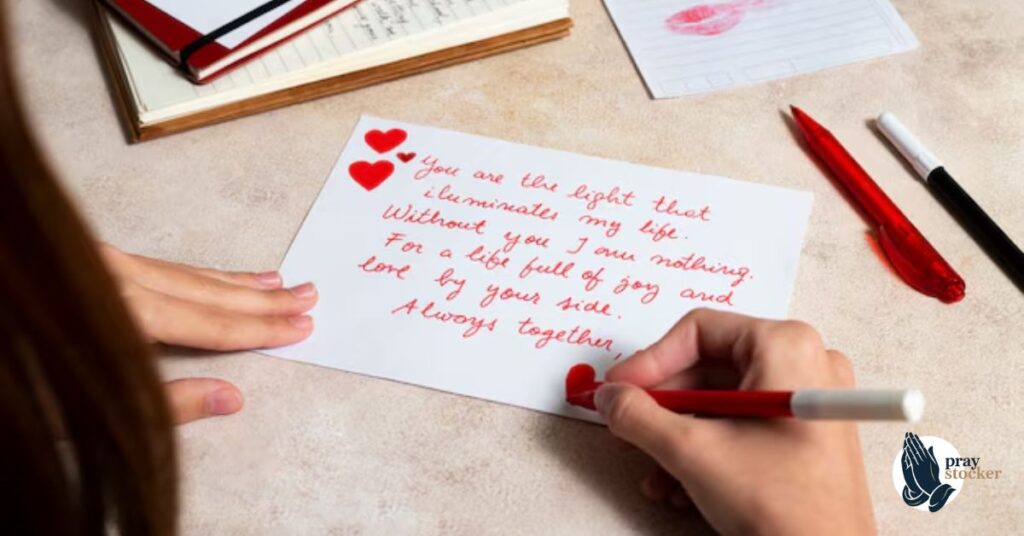 You are the light that
iluminates my life.
Without you I am nothing.
For a life full of joy and
love by your side.
Always together,
pray
stocker